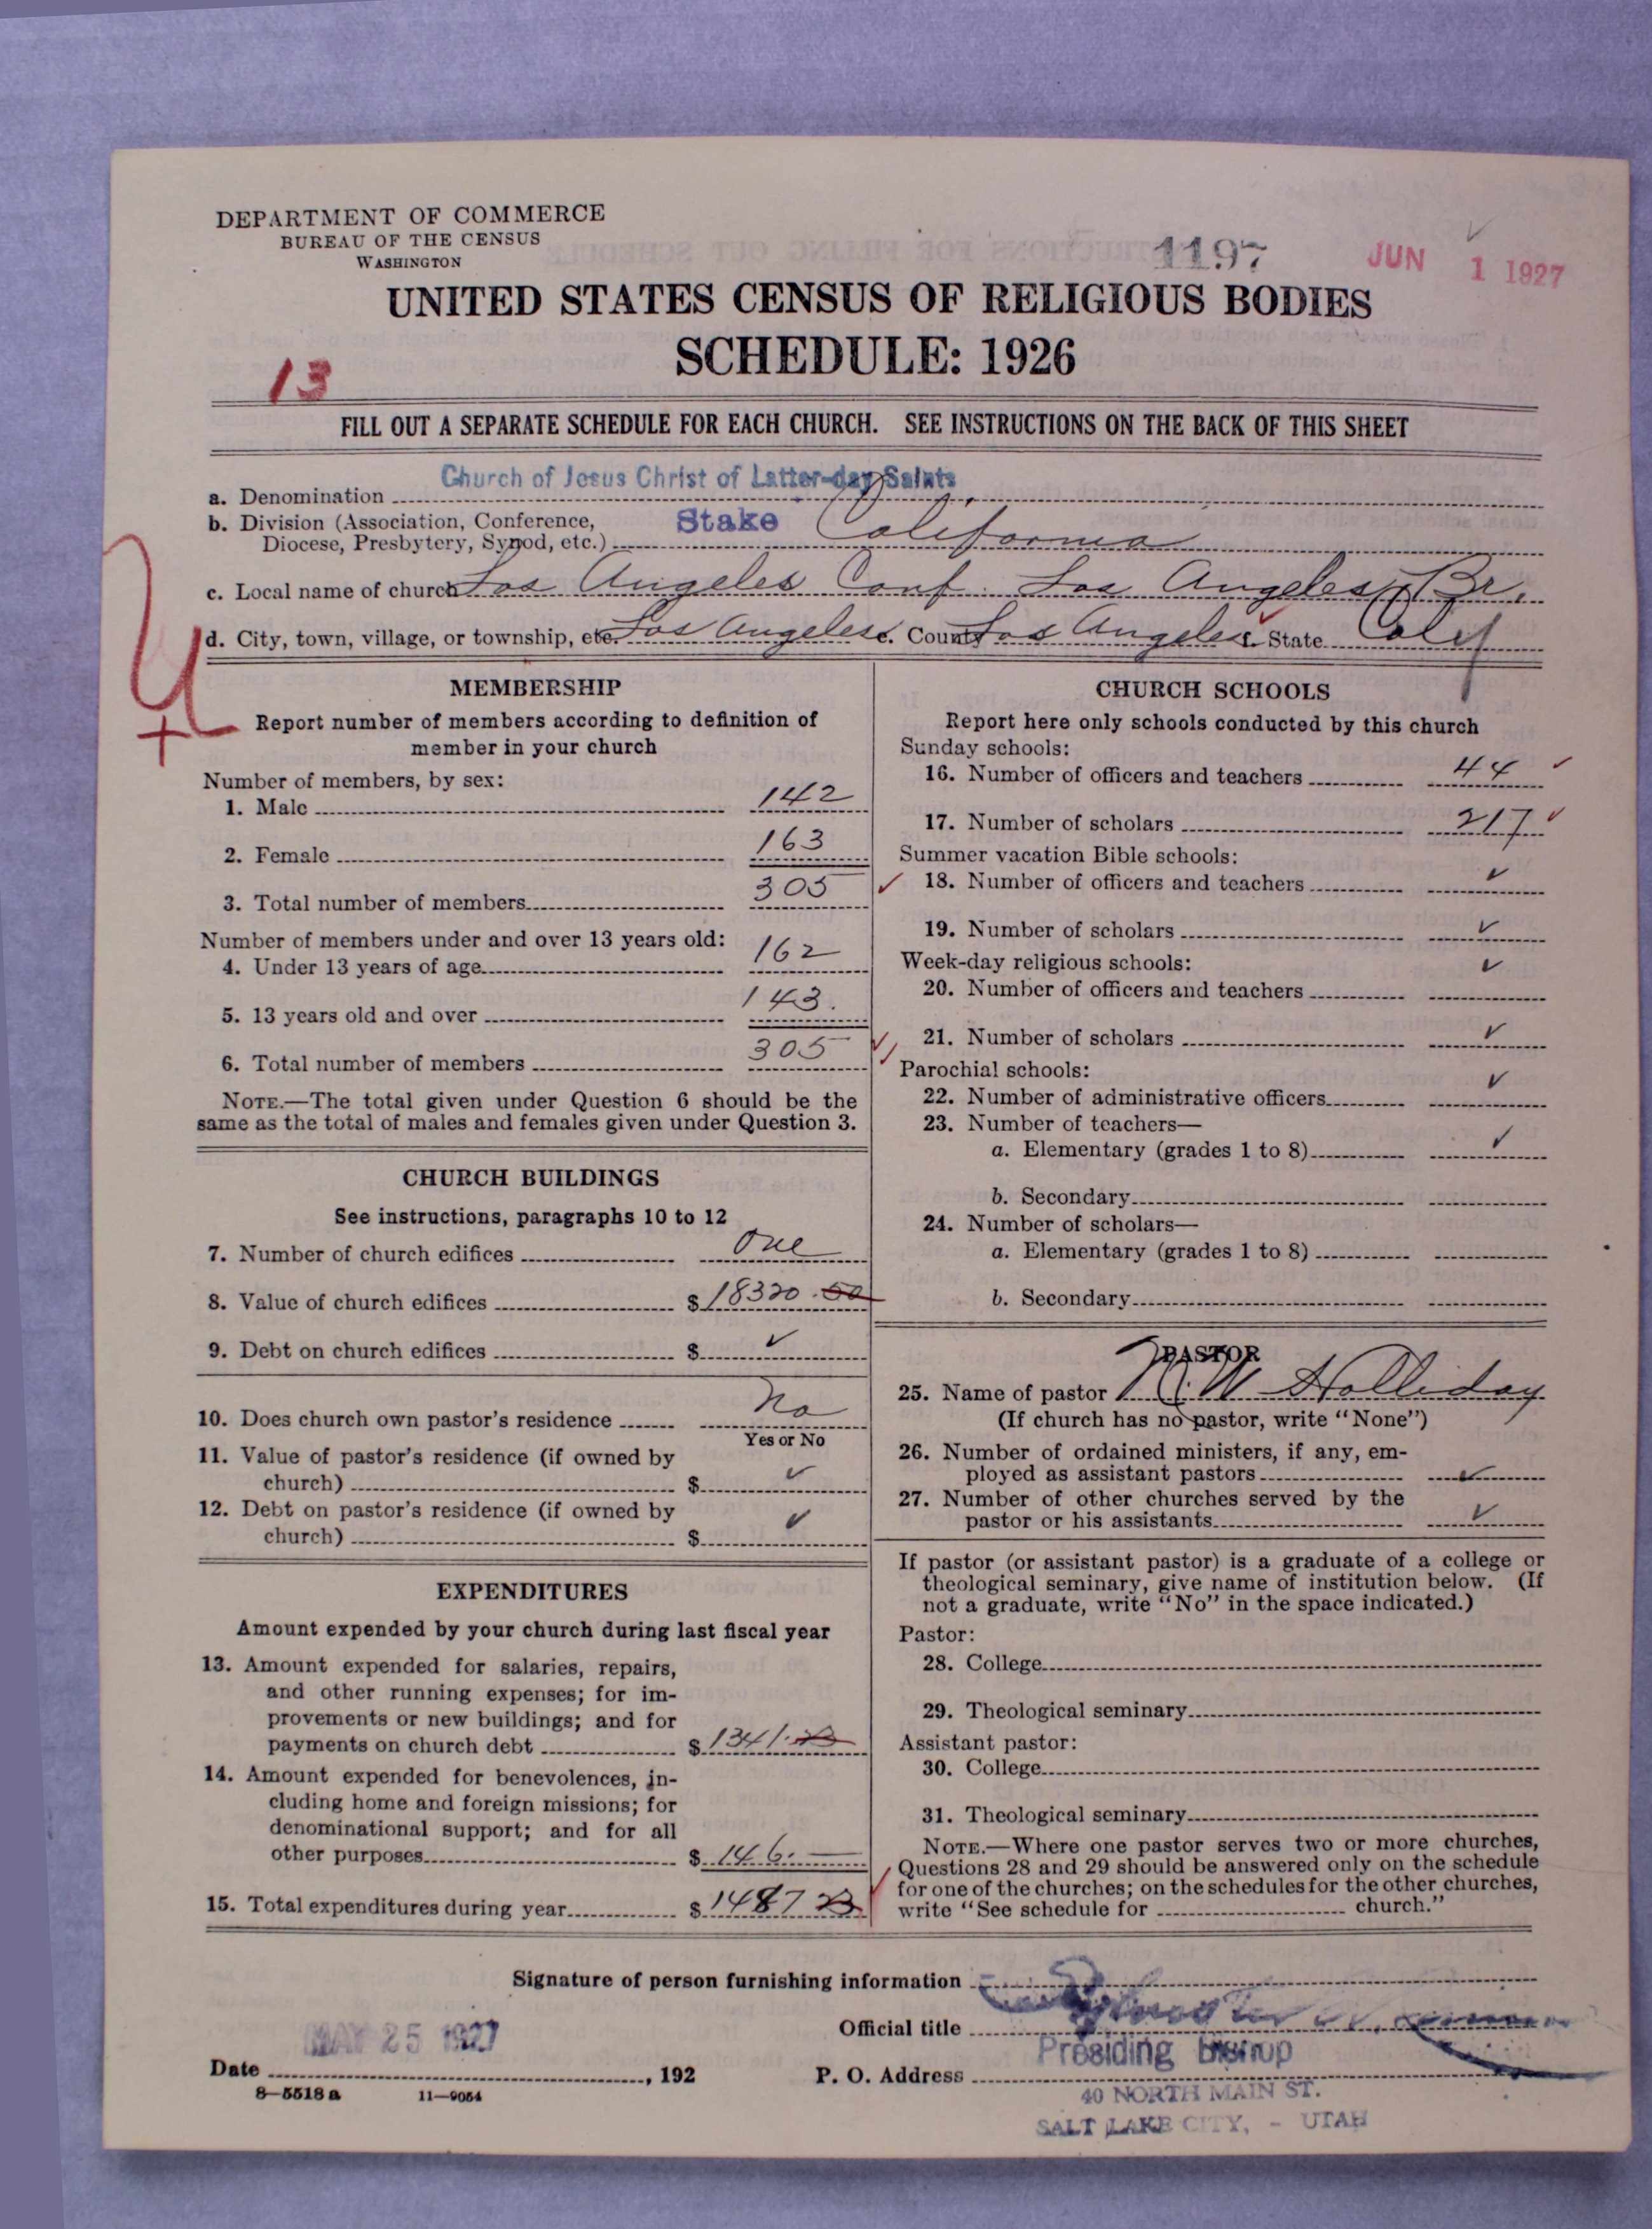 DEPARTMENT OF COMMERCE
BUREAU OF THE CENSUS
WASHINGTON
1197
JUN 1 1927
UNITED STATES CENSUS OF RELIGIOUS BODIES
SCHEDULE: 1926
13
FILL OUT A SEPARATE SCHEDULE FOR EACH CHURCH. SEE INSTRUCTIONS ON THE BACK OF THIS SHEET
a. Denomination Church of Jesus Christ of Latter-day Saints
b. Division (Association, Conference, Stake California
Diocese, Presbytery, Synod, etc.)
c. Local name of church Los Angeles Conf. Los Angeles Br.
d. City, town, village, or township, etc. Los Angeles e. County Los Angeles f. State Calif
MEMBERSHIP
Report number of members according to definition of
member in your church
Number of members, by sex:
1. Male 142
2. Female 163
3. Total number of members 305 ✓
Number of members under and over 13 years old:
4. Under 13 years of age 162
5. 13 years old and over 143.
6. Total number of members 305 ✓✓
NOTE.—The total given under Question 6 should be the
same as the total of males and females given under Question 3.
CHURCH BUILDINGS
See instructions, paragraphs 10 to 12
7. Number of church edifices One
8. Value of church edifices $ 18320.50
9. Debt on church edifices $ ✓
10. Does church own pastor's residence No
Yes or No
11. Value of pastor's residence (if owned by
church) $ ✓
12. Debt on pastor's residence (if owned by
church) $ ✓
EXPENDITURES
Amount expended by your church during last fiscal year
13. Amount expended for salaries, repairs,
and other running expenses; for im-
provements or new buildings; and for
payments on church debt $ 1341.23
14. Amount expended for benevolences, in-
cluding home and foreign missions; for
denominational support; and for all
other purposes $ 146.—
15. Total expenditures during year $ 1487 23 ✓
CHURCH SCHOOLS
Report here only schools conducted by this church
Sunday schools:
16. Number of officers and teachers 44 ✓
17. Number of scholars 217 ✓
Summer vacation Bible schools:
18. Number of officers and teachers ✓
19. Number of scholars ✓
Week-day religious schools: ✓
20. Number of officers and teachers
21. Number of scholars ✓
Parochial schools:
22. Number of administrative officers ✓
23. Number of teachers—
a. Elementary (grades 1 to 8) ✓
b. Secondary
24. Number of scholars—
a. Elementary (grades 1 to 8)
b. Secondary
PASTOR
25. Name of pastor W Holliday
(If church has no pastor, write "None")
26. Number of ordained ministers, if any, em-
ployed as assistant pastors ✓
27. Number of other churches served by the
pastor or his assistants ✓
If pastor (or assistant pastor) is a graduate of a college or
theological seminary, give name of institution below. (If
not a graduate, write "No" in the space indicated.)
Pastor:
28. College
29. Theological seminary
Assistant pastor:
30. College
31. Theological seminary
NOTE.—Where one pastor serves two or more churches,
Questions 28 and 29 should be answered only on the schedule
for one of the churches; on the schedules for the other churches,
write "See schedule for church."
Signature of person furnishing information
Official title
Presiding Bishop
MAY 25 1927
Date , 192
P. O. Address
40 NORTH MAIN ST.
SALT LAKE CITY, - UTAH
8—5518 a 11—9054